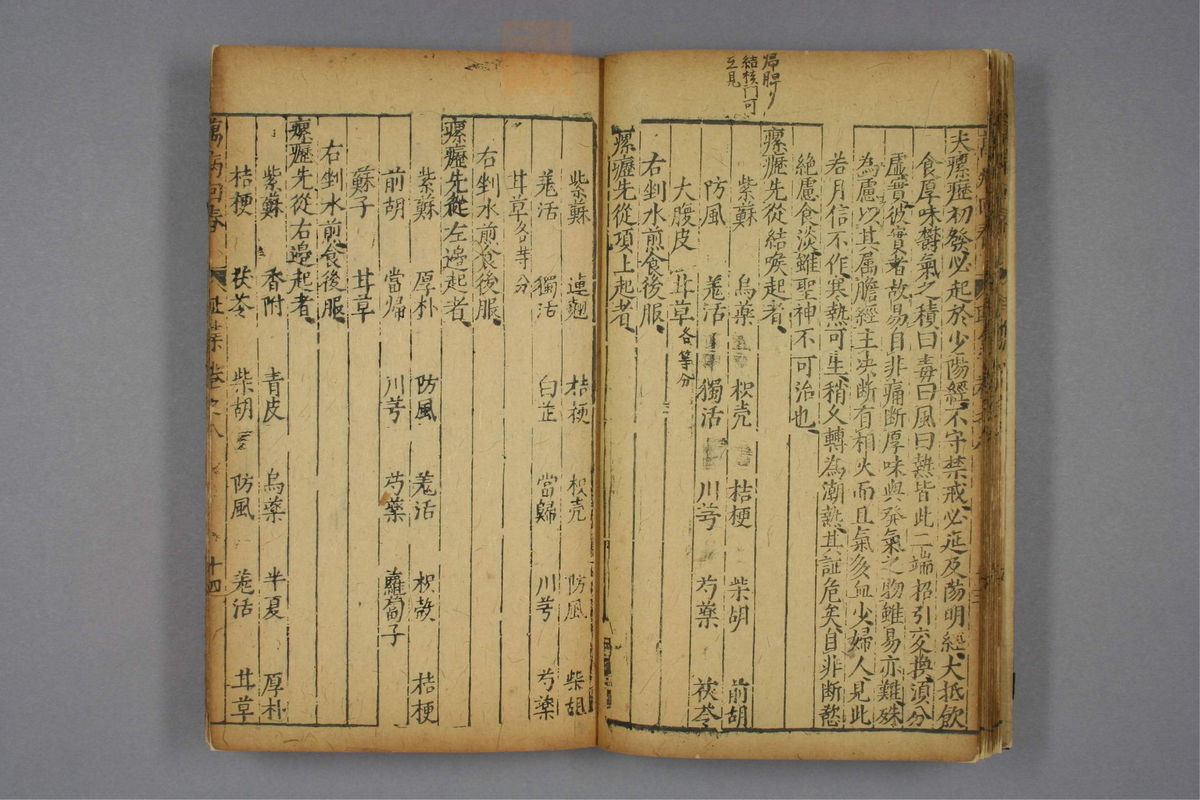 帰脾リ
結核门可
互見
夫瘰癧初發必起於少陽經不守禁戒必延及陽明經大抵飲
食厚味鬱氣之積曰毒曰風曰熱皆此二端招引变換湏分
虛實彼實者故易自非痛断厚味與発氣之物雖易亦難殊
為慮以其属膽經主决断有相火而且氣多血少婦人見此
若月信不作寒熱可生稍久轉為潮熱其証危矣自非断慾
絶慮食淡雖聖神不可治也
瘰癧先從結喉起者
紫蘇 烏藥 枳壳 桔梗 柴胡 前胡
防風 羗活 獨活 川芎 芍藥 茯苓
大腹皮 甘草各等分
右剉水煎食後服
瘰癧先從項上起者
紫蘇 連翹 桔梗 枳壳 防風 柴胡
羗活 獨活 白芷 當歸 川芎 芍藥
甘草各等分
右剉水煎食後服
瘰癧先從左邉起者
紫蘇 厚朴 防風 羗活 枳殼 桔梗
前胡 當帰 川芎 芍藥 蘿蔔子
蘇子 甘草
右剉水煎食後服
瘰癧先從右邉起者
紫蘇 香附 青皮 烏藥 半夏 厚朴
桔梗 茯苓 柴胡 防風 羗活 甘草
萬病回春 卷之八 十四